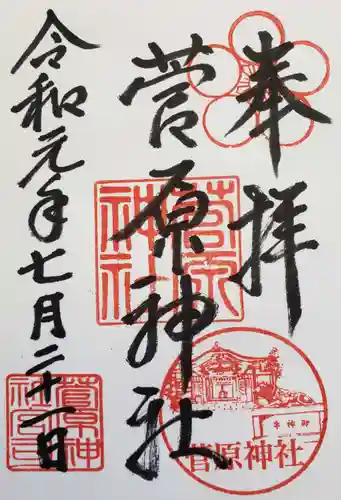 奉拝
菅原神社
令和元年七月二十一日
菅原
神社
御神牛
菅原神社
菅原神